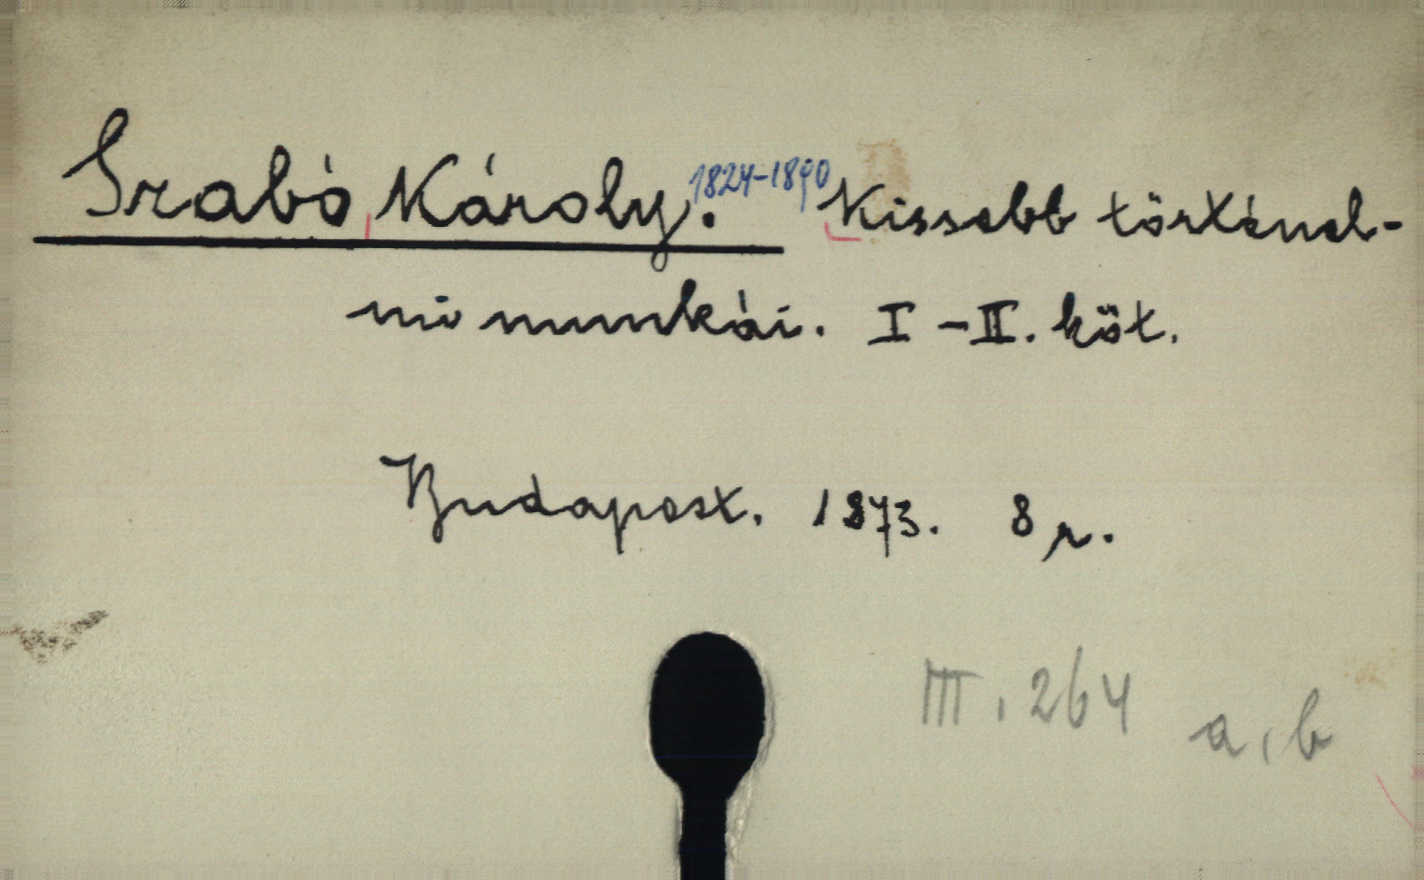 Szabó Károly. 1824-1890 Kissebb történel-
mi munkái. I-II. köt.
Budapest. 1873. 8 r.
III. 264 a, b